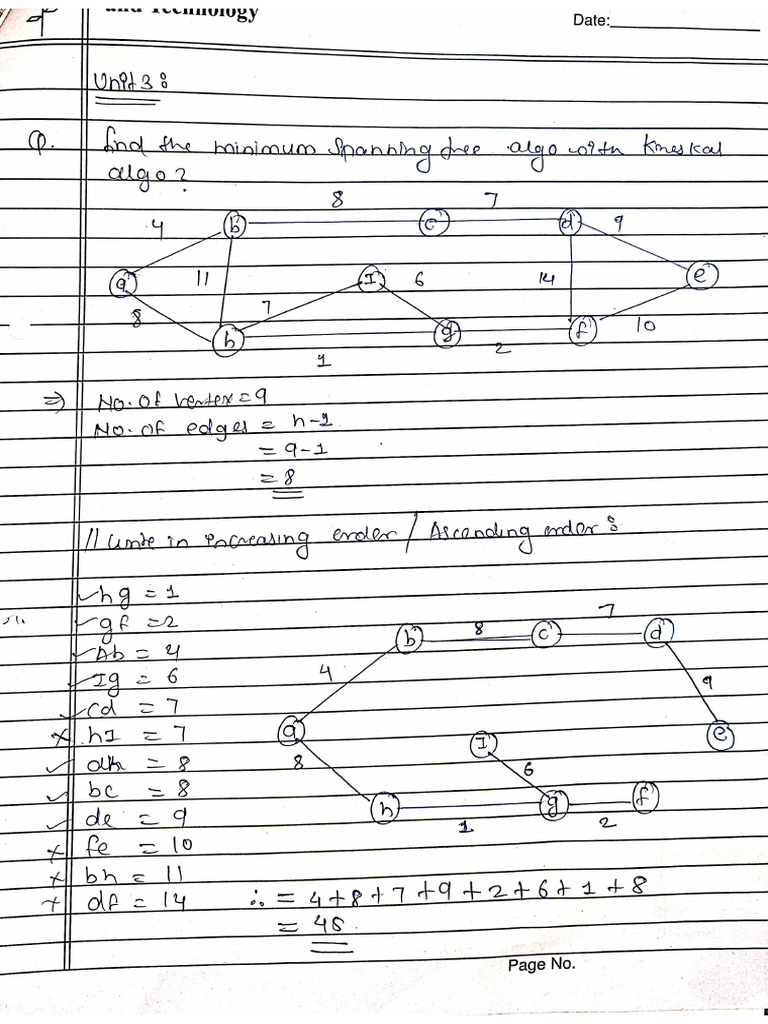 and Technology
Date:
Unit 3:
Q. find the minimum spanning tree algo with kruskal
algo?
8 7
4 b c d 9
a 11 I 6 14 e
8 7
h g f 10
1 2
=> No. of vertex = 9
No. of edges = n-1
= 9-1
= 8
// write in increasing order / Ascending order :
hg = 1
gf = 2
Ab = 4
Ig = 6
cd = 7
hI = 7
ah = 8
bc = 8
de = 9
fe = 10
bh = 11
df = 14
7
b 8 c d
4
9
a I e
8 6
h g f
1 2
∴ = 4+8+7+9+2+6+1+8
= 45
Page No.